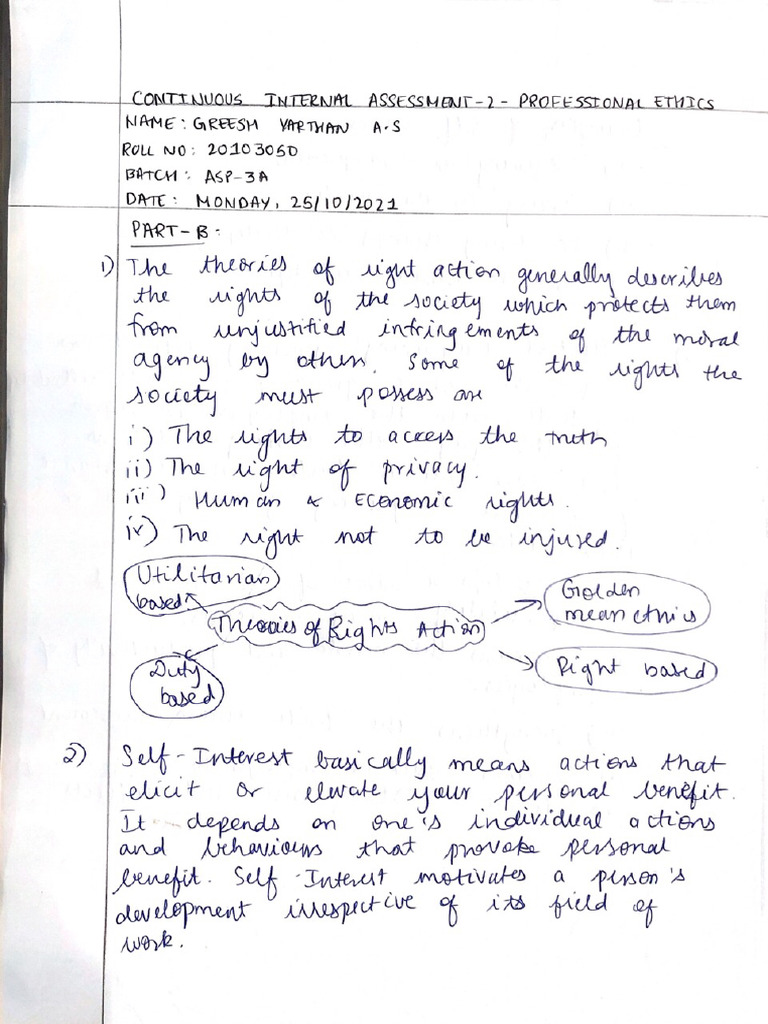 CONTINUOUS INTERNAL ASSESSMENT-2 - PROFESSIONAL ETHICS
NAME: GREESH VARTHAN A.S
ROLL NO: 20103050
BATCH: ASP-3A
DATE: MONDAY, 25/10/2021
PART-B:
1) The theories of right action generally describes
the rights of the society which protects them
from unjustified infringements of the moral
agency by others. Some of the rights the
society must possess are
i) The rights to access the truth
ii) The right of privacy.
iii) Human & Economic rights.
iv) The right not to be injured.
Utilitarian
based
Golden
mean ethics
Theories of Rights Action
Duty
based
Right based
2) Self-Interest basically means actions that
elicit or elevate your personal benefit.
It depends on one's individual actions
and behaviours that provoke personal
benefit. Self-Interest motivates a person's
development irrespective of its field of
work.